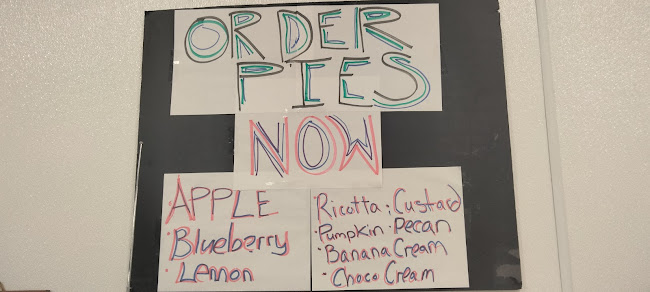 ORDER
PIES
NOW
APPLE
· Blueberry
· Lemon
Ricotta · Custard
· Pumpkin · Pecan
· Banana Cream
· Choco Cream